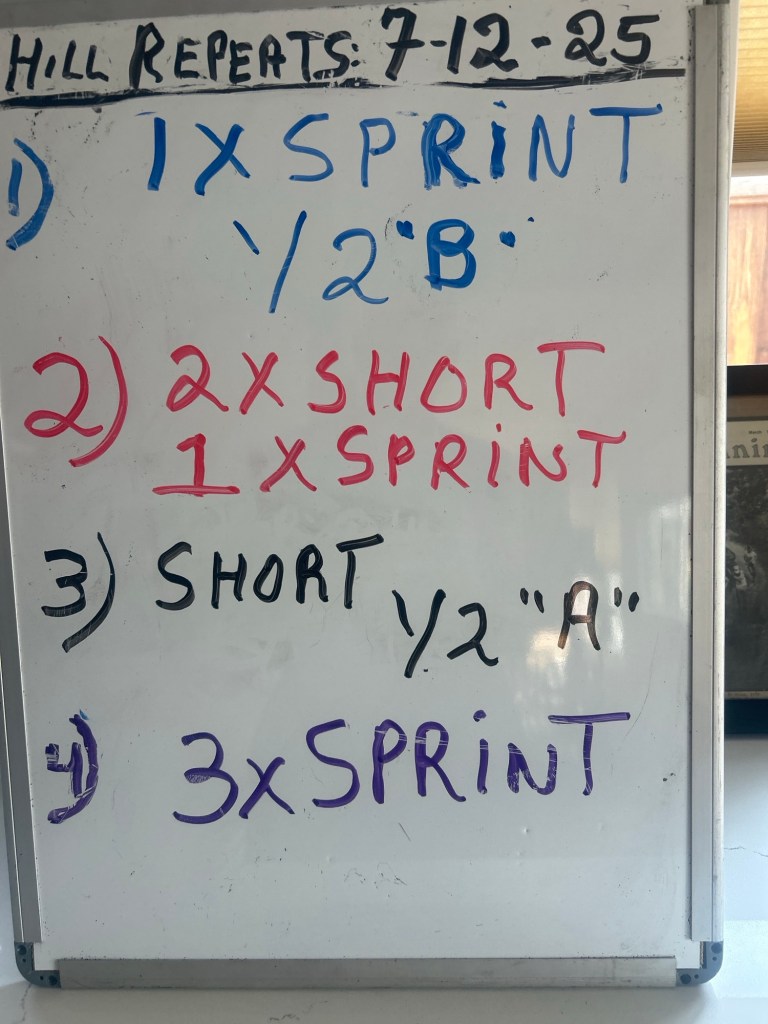 HILL REPEATS: 7-12-25
1) 1 X SPRINT
1/2 "B"
2) 2 X SHORT
1 X SPRINT
3) SHORT 1/2 "A"
4) 3 X SPRINT